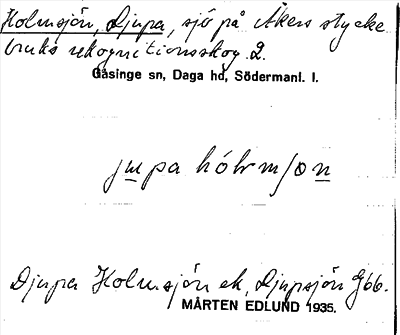 Holmsjön, Djupa, sjö på Åkers stycke
bruks rekognitionsskog. 2.
Gåsinge sn, Daga hd, Södermanl. l.
jupa hólmsjon
Djupa Holmsjön ek, Djupsjön Gbb.
MÅRTEN EDLUND 1935.